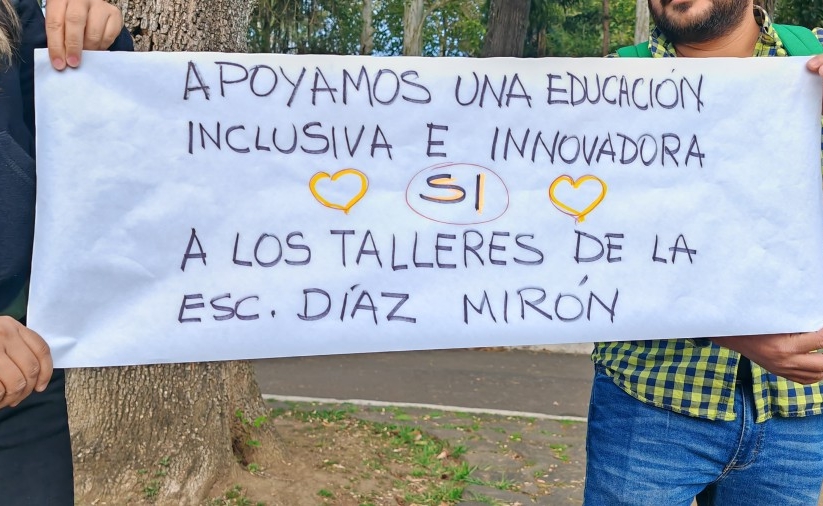 APOYAMOS UNA EDUCACIÓN
INCLUSIVA E INNOVADORA
SI
A LOS TALLERES DE LA
ESC. DÍAZ MIRÓN